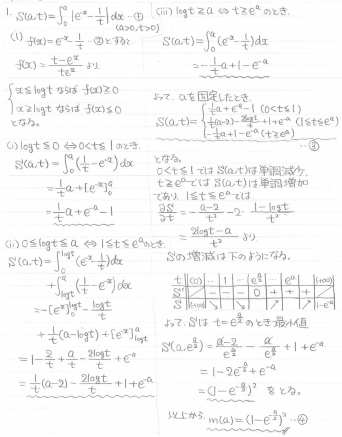 1. S(a,t)=∫₀ᵃ |e⁻ˣ-1/t| dx …①
(a>0, t>0)
(1) f(x)=e⁻ˣ-1/t …②とすると
f(x)=(t-eˣ)/(teˣ) より
{x≦logt ならば f(x)≧0
x≧logt ならば f(x)≦0
となる。
(i) logt≦0 ⇔ 0<t≦1 のとき.
S(a,t)=∫₀ᵃ(1/t-e⁻ˣ)dx
=1/t a+[e⁻ˣ]₀ᵃ
=1/t a+e⁻ᵃ-1
(ii) 0≦logt≦a ⇔ 1≦t≦eᵃ のとき.
S(a,t)=∫₀^{logt}(e⁻ˣ-1/t)dx
+∫_{logt}^a(1/t-e⁻ˣ)dx
=-[e⁻ˣ]₀^{logt}-logt/t
+1/t(a-logt)+[e⁻ˣ]_{logt}^a
=1-2/t+a/t-2logt/t+e⁻ᵃ
=1/t(a-2)-2logt/t+1+e⁻ᵃ
(iii) logt≧a ⇔ t≧eᵃ のとき.
S(a,t)=∫₀ᵃ(e⁻ˣ-1/t)dx
=-1/t a+1-e⁻ᵃ
よって、aを固定したとき.
S(a,t)={1/t a+e⁻ᵃ-1 (0<t≦1)
1/t(a-2)-2logt/t+1+e⁻ᵃ (1≦t≦eᵃ)
-1/t a+1-e⁻ᵃ (t≧eᵃ)
…③
となる.
0<t≦1 では S(a,t)は単調減少,
t≧eᵃでは S(a,t)は単調増加
であり, 1≦t≦eᵃでは,
∂S/∂t=-(a-2)/t²-2・(1-logt)/t²
=(2logt-a)/t² より
Sの増減は下のようになる.
t (0) … 1 … e^{a/2} … eᵃ … (+∞)
S' - - - 0 + + +
S (+∞) ↘ ↘ ↗ ↗ (1-e⁻ᵃ)
よって、Sは t=e^{a/2}のとき最小値
S(a,e^{a/2})=(a-2)/e^{a/2}-a/e^{a/2}+1+e⁻ᵃ
=1-2e^{-a/2}+e⁻ᵃ
=(1-e^{-a/2})² をとる。
以上から m(a)=(1-e^{-a/2})² …④